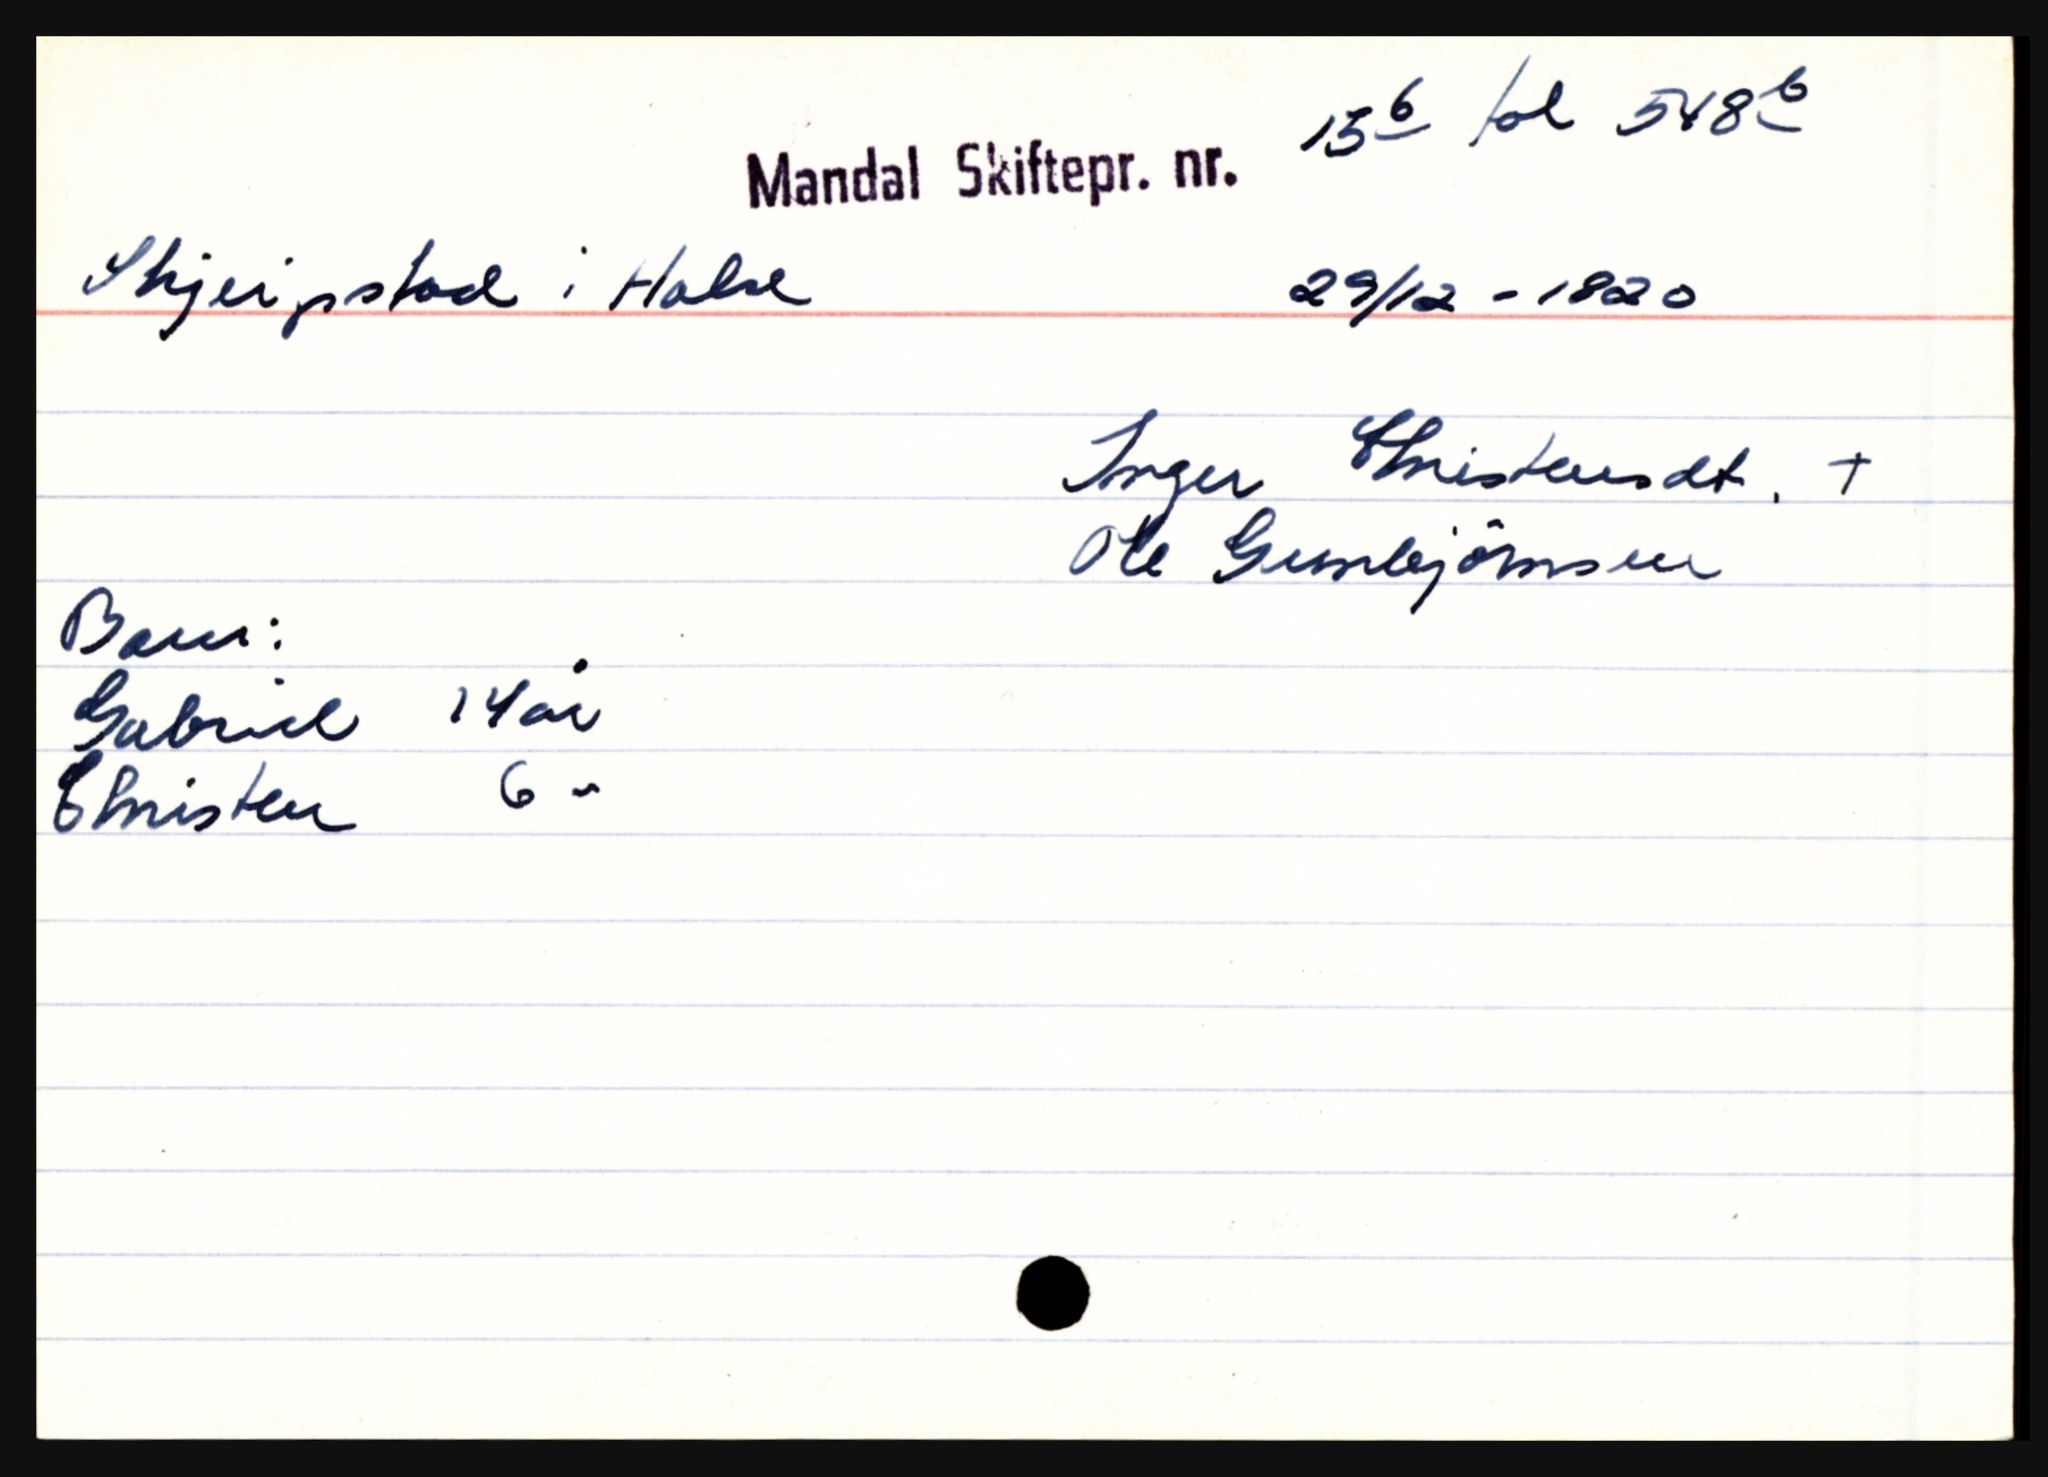 Mandal Skiftepr. nr. 15 b fol 548 b
Skjeipstad i Halse 29/12 - 1820
Inger Christensdt. +
Ole Gunbjörnsen
Barn:
Gabriel 14 år
Christen 6 "